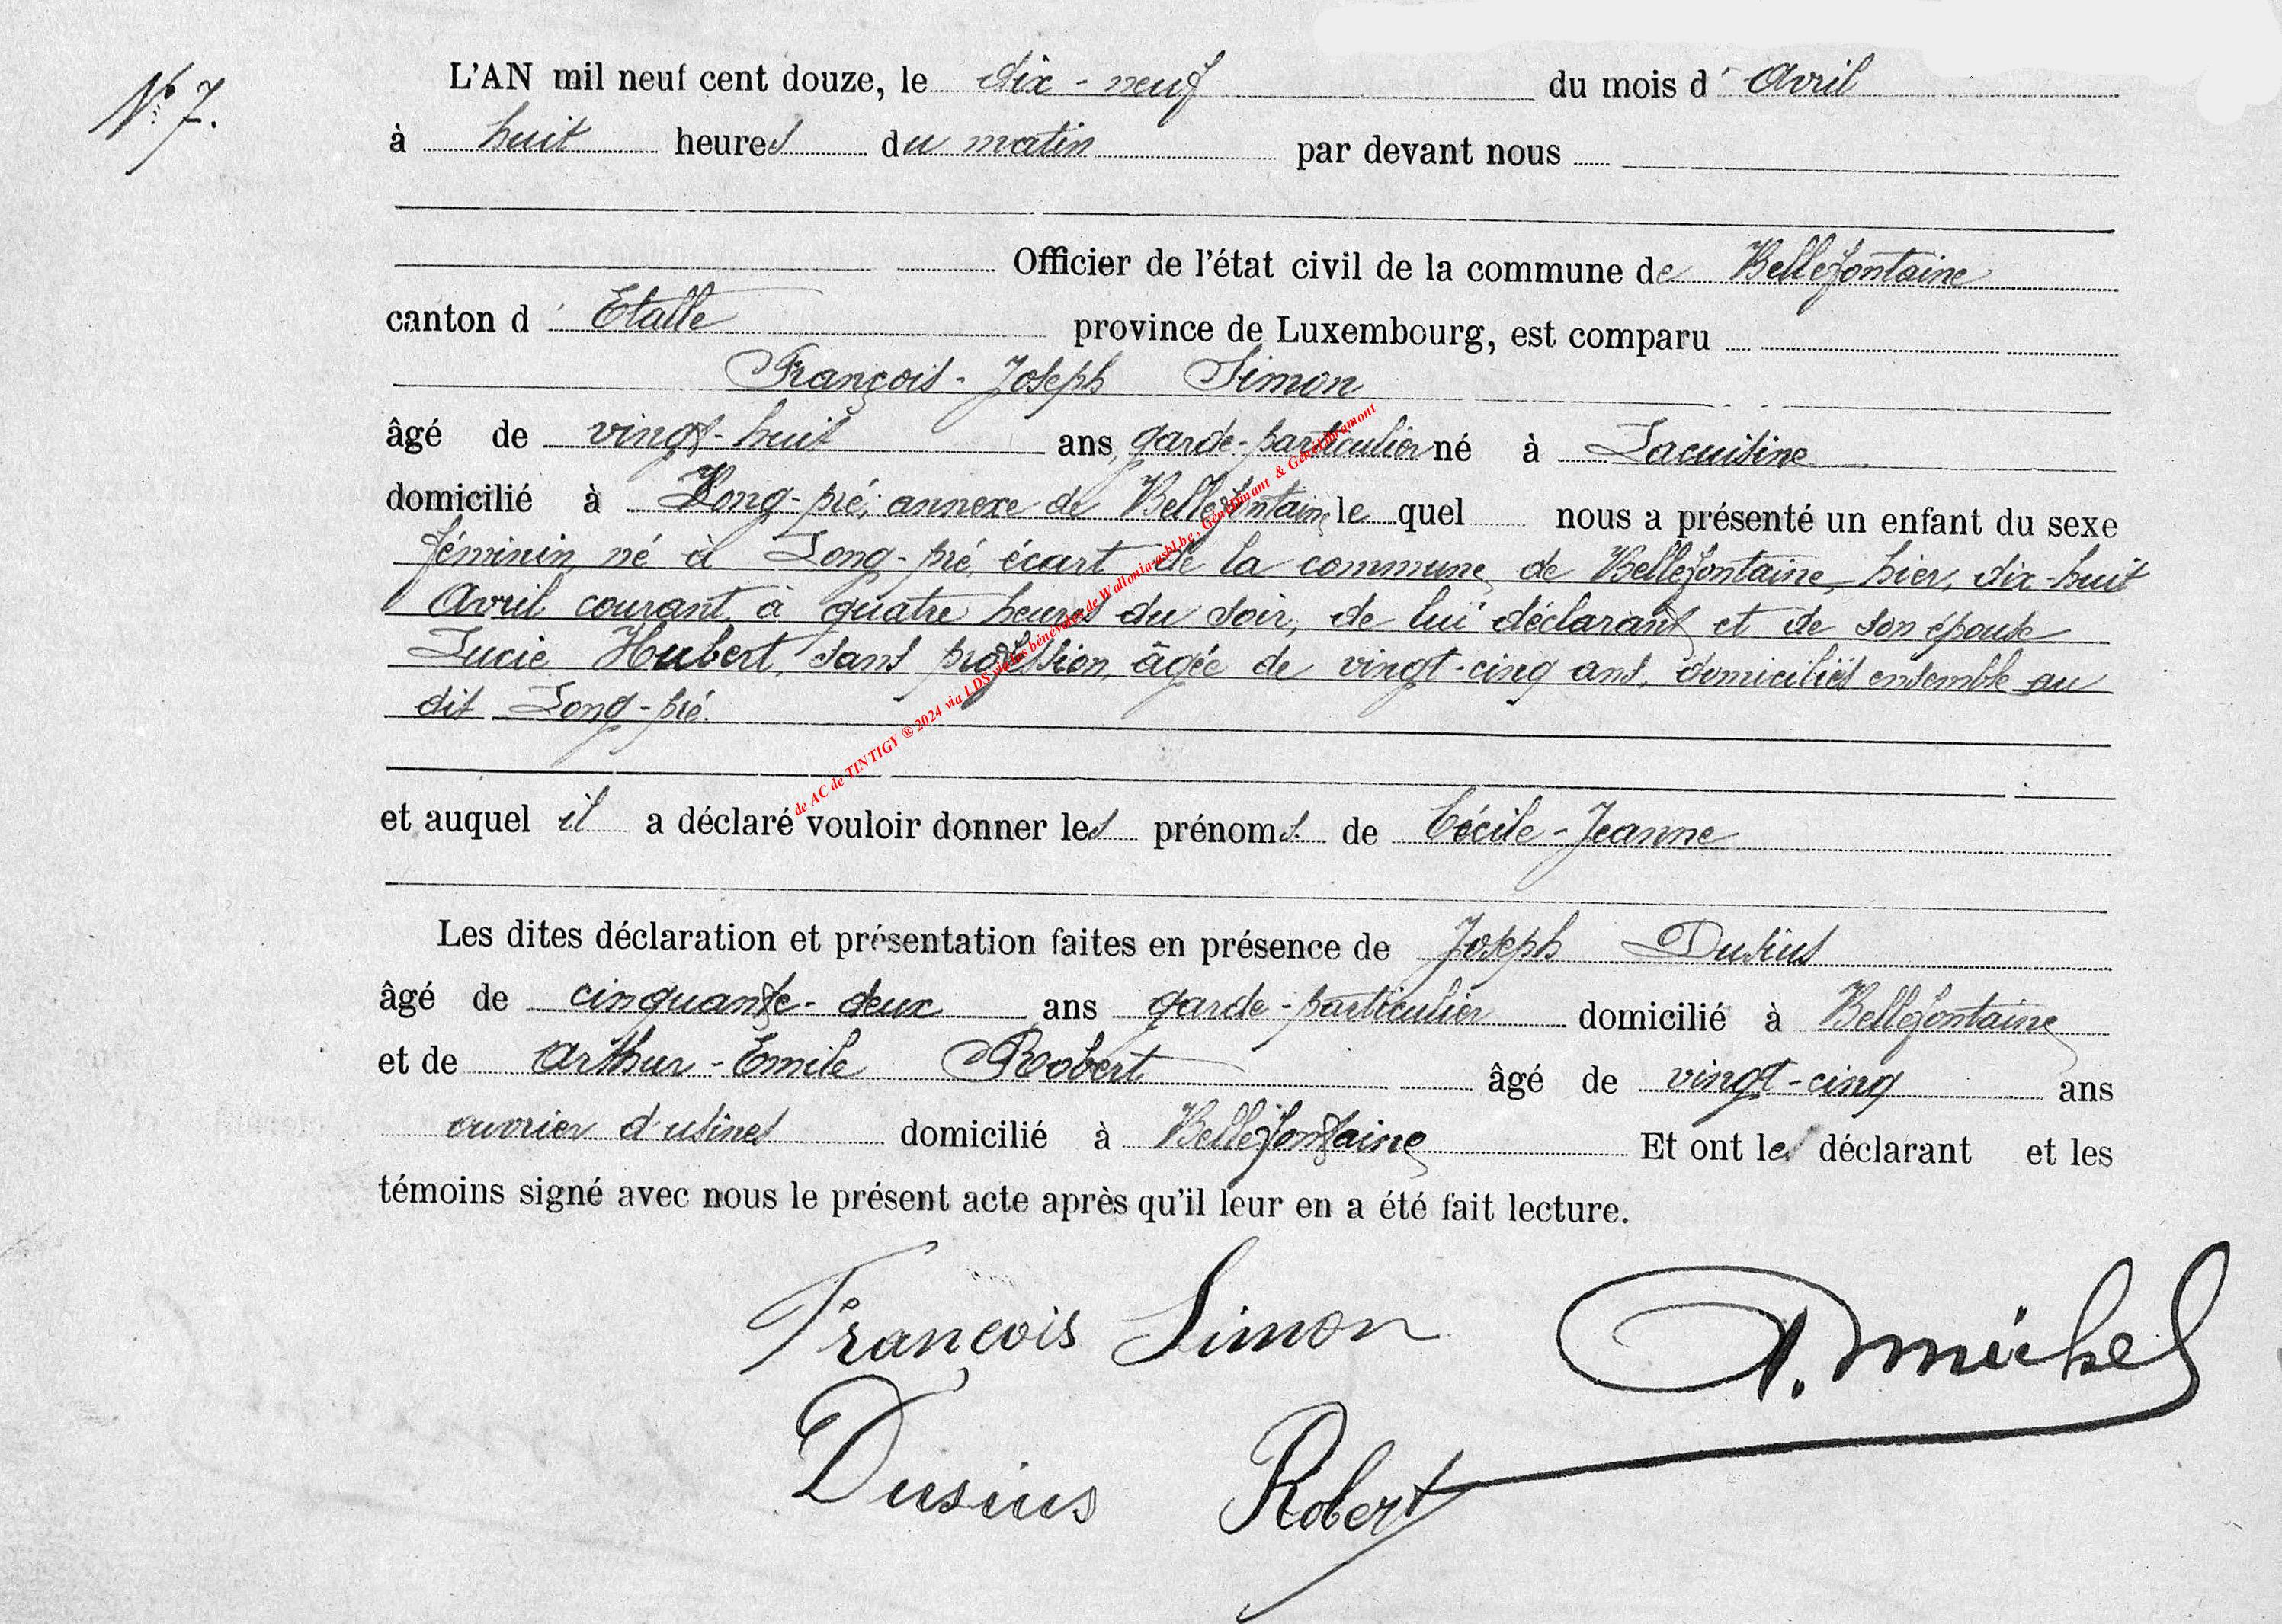 N° 7.
L'AN mil neuf cent douze, le dix-neuf du mois d' Avril
à huit heures du matin par devant nous
Officier de l'état civil de la commune de Bellefontaine
canton d' Etalle province de Luxembourg, est comparu
François-Joseph Simon
âgé de vingt-huit ans, garde-particulier né à Lacuisine
domicilié à Long-pré, annexe de Bellefontaine le quel nous a présenté un enfant du sexe
féminin, né à Long-pré, écart de la commune de Bellefontaine, hier, dix-huit
Avril courant, à quatre heures du soir, de lui déclarant et de son épouse
Lucie Hubert, sans profession, âgée de vingt-cinq ans, domiciliés ensemble au
dit Long-pré.
et auquel il a déclaré vouloir donner les prénoms de Cécile-Jeanne
Les dites déclaration et présentation faites en présence de Joseph Dusius
âgé de cinquante-deux ans garde-particulier domicilié à Bellefontaine
et de Arthur-Emile Robert âgé de vingt-cinq ans
ouvrier d'usines domicilié à Bellefontaine Et ont les déclarant et les
témoins signé avec nous le présent acte après qu'il leur en a été fait lecture.
François Simon
Michel
Dusius Robert
de AC de TINTIGY ® 2024 via LDS et les bénévoles de Wallonia-asbl.be, GénéDinant & GénéLibramont